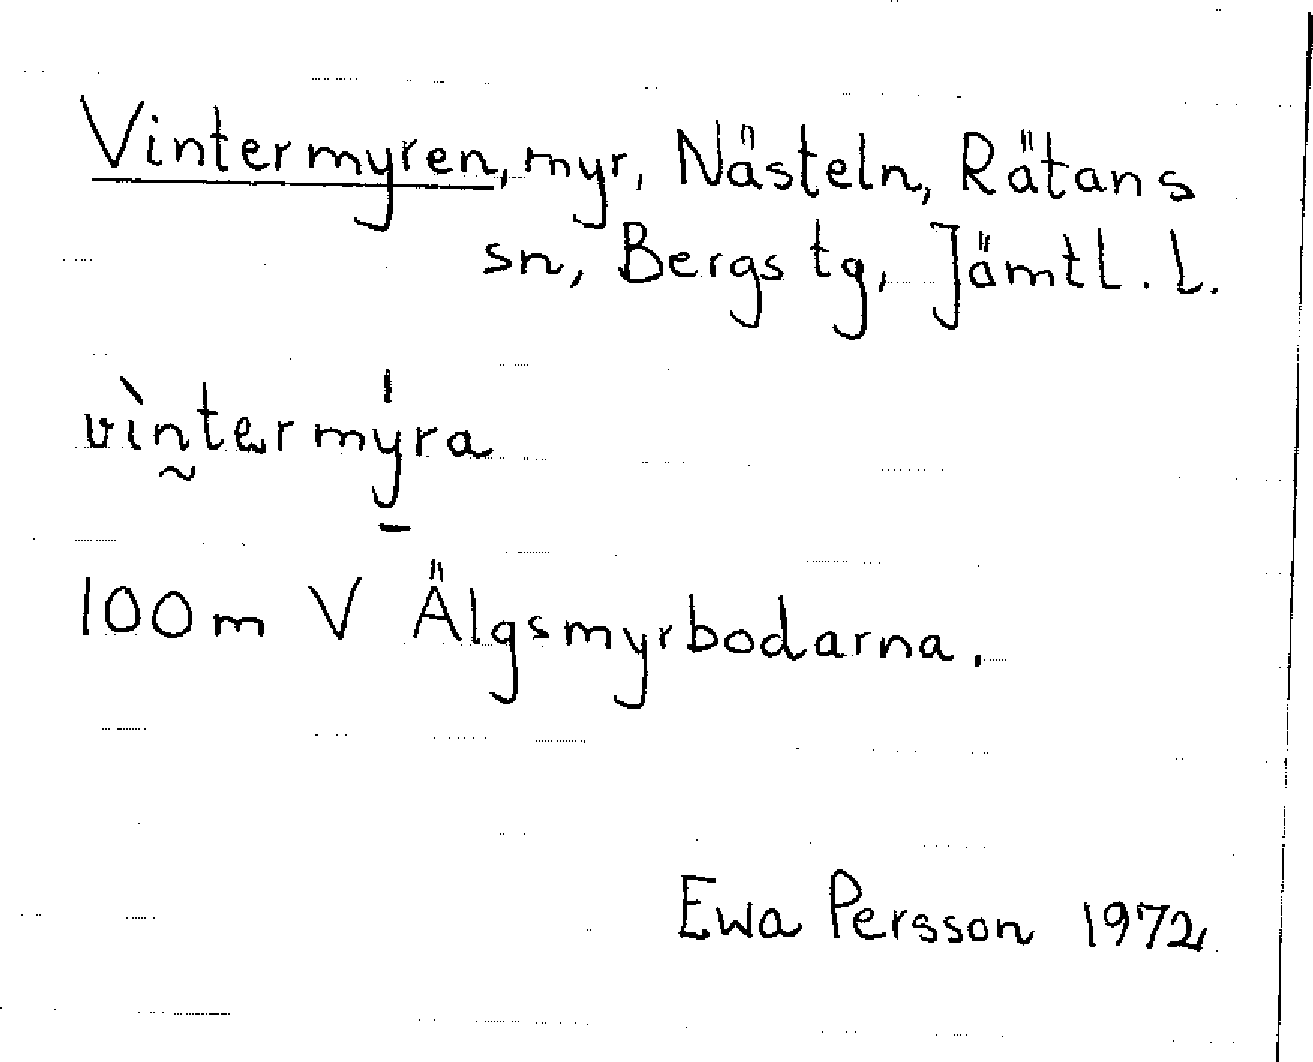 Vintermyren, myr, Nästeln, Rätans
sn, Bergs tg, Jämtl. l.
vìn̰tərmýra
100 m V Älgsmyrbodarna.
Ewa Persson 1972.